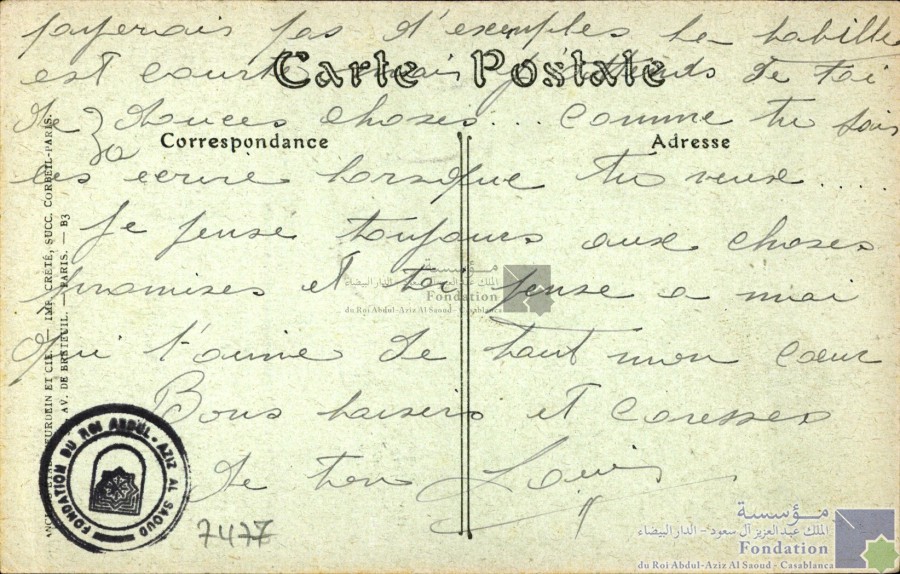 payerais pas d'exemples la
est court mais j'attends de toi
de douces choses... comme tu sais
les ecrire lorsque tu veux....
Je pense toujours aux choses
promises et toi pense a moi
qui t'aime de tout mon cœur
Bons baisers et caresses
de ton Louis
Carte Postale
Correspondance
Adresse
IMP. CRÉTÉ, SUCC. CORBEIL-PARIS.
AV. DE BRETEUIL. — PARIS. — B3
مؤسسة
الملك عبد العزيز آل سعود - الدار البيضاء
Fondation
du Roi Abdul-Aziz Al Saoud - Casablanca
FONDATION DU ROI ABDUL-AZIZ AL SAOUD
7477
مؤسسة
الملك عبد العزيز آل سعود - الدار البيضاء
Fondation
du Roi Abdul-Aziz Al Saoud - Casablanca